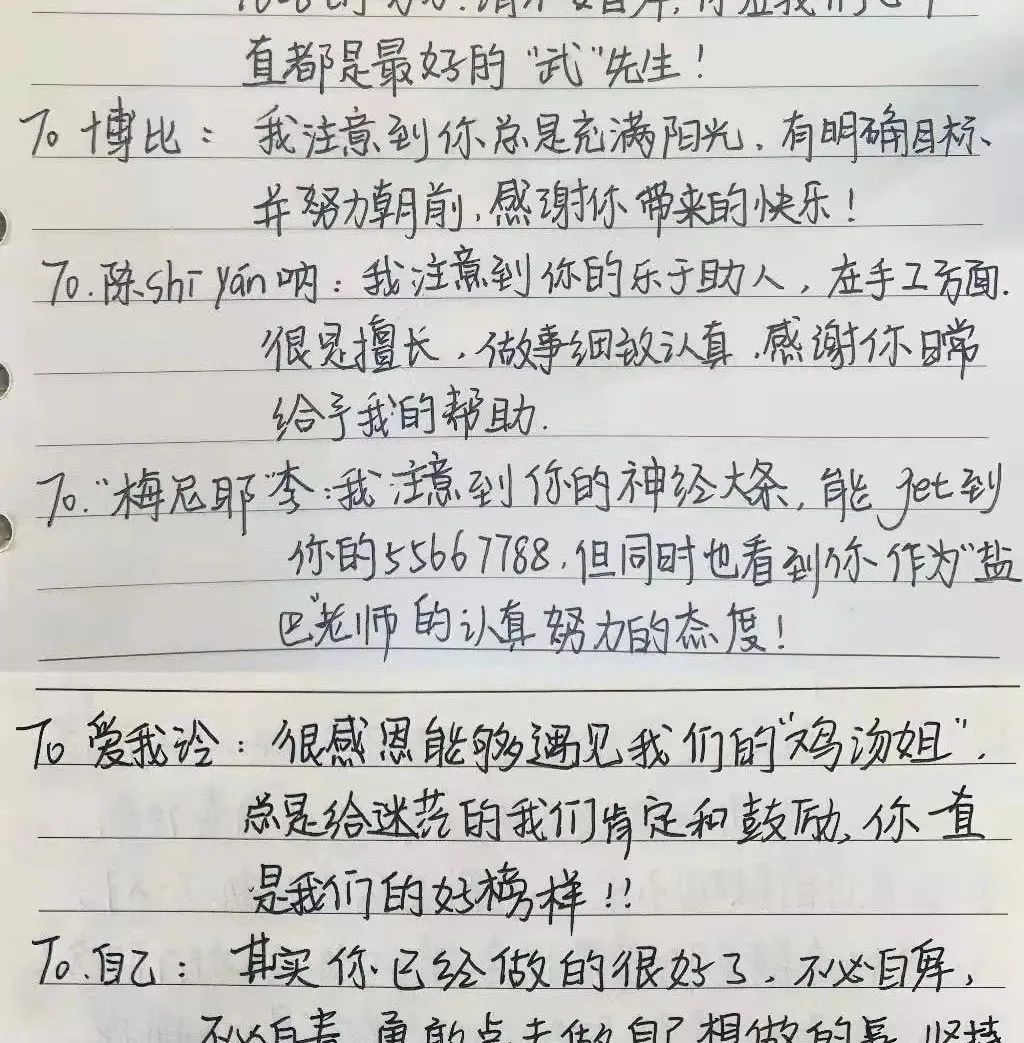 直都是最好的“武”先生!
To 博比：我注意到你总是充满阳光，有明确目标、
并努力朝前，感谢你带来的快乐!
To.陈shī yán呐：我注意到你的乐于助人，在手工方面.
很是擅长，做事细致认真.感谢你日常
给予我的帮助.
To.“梅尼耶”李:我注意到你的神经大条，能get到
你的55667788.但同时也看到你作为“盐
巴”老师的认真努力的态度!
To 爱我诊：很感恩能够遇见我们的“鸡汤姐”.
总是给迷茫的我们肯定和鼓励,你一直
是我们的好榜样!!
To.自己：其实你已经做的很好了，不必自卑，
不必自责,勇敢点去做自己想做的事,坚持